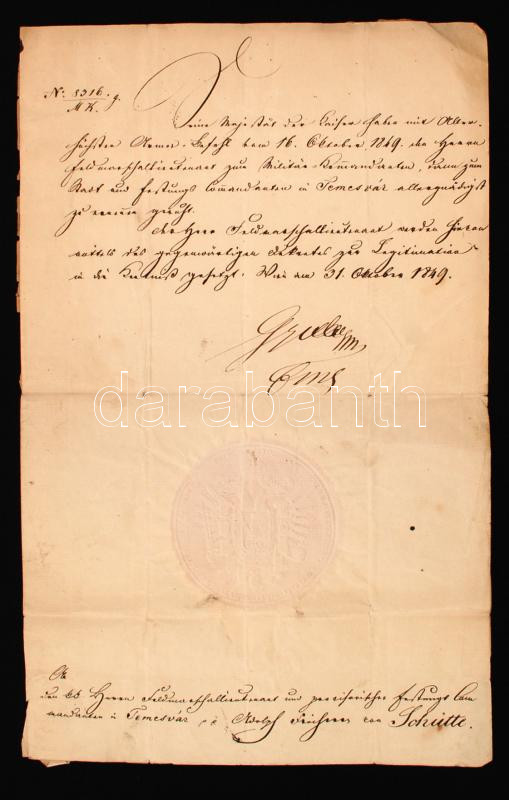 N: 8316 g.
M K.
Seine Majestät der Kaiser haben mit Aller-
höchstem Armee-Befehl vom 16. Oktober 1849 den Herrn
Feldmarschallieutenant zum Militär-Kommandanten, dann zum
Stadt und Festungs Comandanten in Temesvár allergnädigst
zu ernennen geruht.
Der Herr Feldmarschallieutenant werden hievon
mittels des gegenwärtigen Dekretes zur Legitimation
in die Kentniß gesetzt. Wien am 31. Oktober 1849.
darabanth
An
den kk Herrn Feldmarschallieutenant und provisorischen Festungs Com
mandanten in Temesvár Adolph Freiherrn von Schütte.